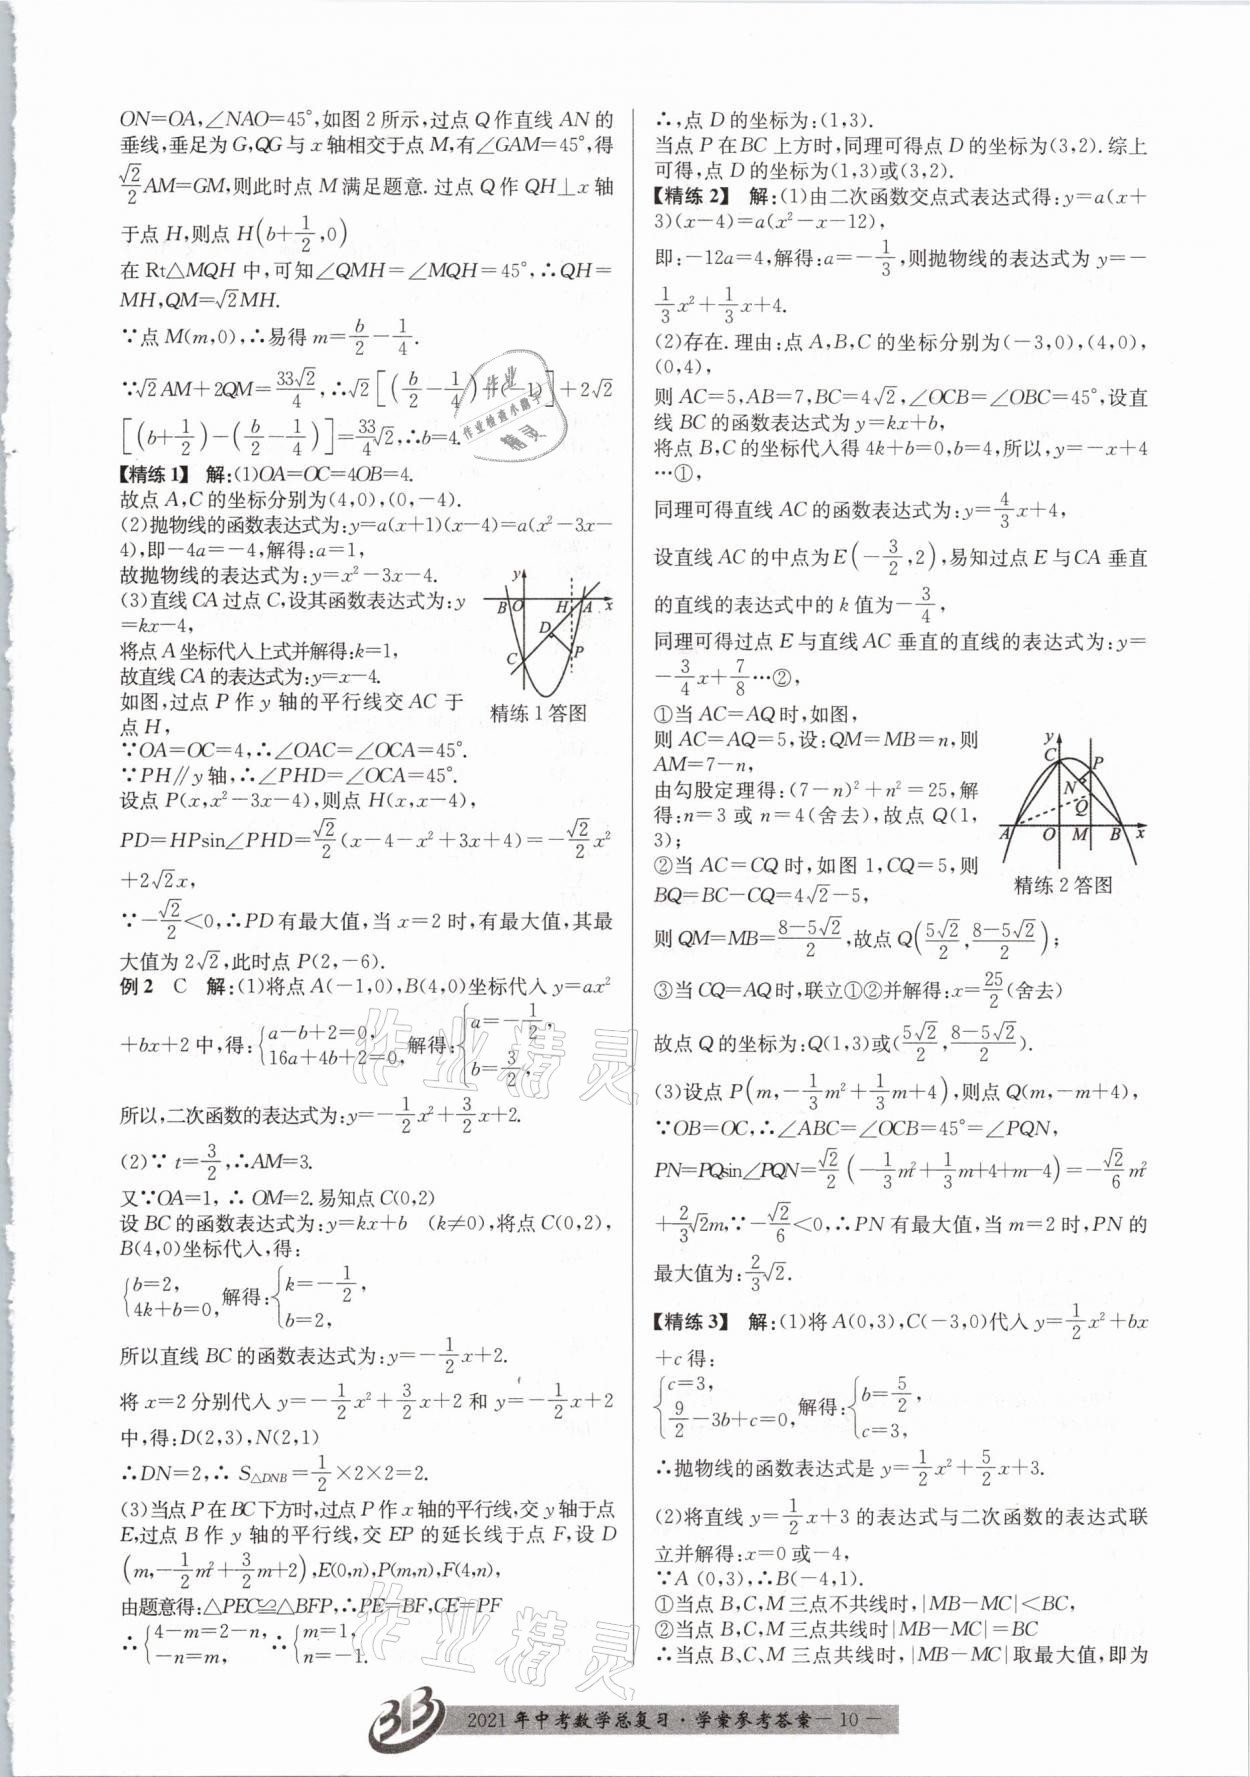 ON=OA,∠NAO=45°,如图2所示,过点Q作直线AN的
垂线,垂足为G,QG与x轴相交于点M,有∠GAM=45°,得
√2/2 AM=GM,则此时点M满足题意.过点Q作QH⊥x轴
于点H,则点H(b+1/2,0)
在Rt△MQH中,可知∠QMH=∠MQH=45°,∴QH=
MH,QM=√2MH.
∵点M(m,0),∴易得m=b/2-1/4.
∵√2AM+2QM=33√2/4,∴√2[(b/2-1/4)-(-1)]+2√2
[(b+1/2)-(b/2-1/4)]=33/4√2,∴b=4.
【精练1】 解:(1)OA=OC=4OB=4.
故点A,C的坐标分别为(4,0),(0,-4).
(2)抛物线的函数表达式为:y=a(x+1)(x-4)=a(x²-3x-
4),即-4a=-4,解得:a=1,
故抛物线的表达式为:y=x²-3x-4.
(3)直线CA过点C,设其函数表达式为:y
=kx-4,
将点A坐标代入上式并解得:k=1,
故直线CA的表达式为:y=x-4.
如图,过点P作y轴的平行线交AC于
点H,
y
B O H A x
D
C P
精练1答图
∵OA=OC=4,∴∠OAC=∠OCA=45°.
∵PH∥y轴,∴∠PHD=∠OCA=45°.
设点P(x,x²-3x-4),则点H(x,x-4),
PD=HPsin∠PHD=√2/2(x-4-x²+3x+4)=-√2/2x²
+2√2x,
∵-√2/2<0,∴PD有最大值,当x=2时,有最大值,其最
大值为2√2,此时点P(2,-6).
例2 C 解:(1)将点A(-1,0),B(4,0)坐标代入y=ax²
+bx+2中,得:{a-b+2=0, 16a+4b+2=0, 解得:{a=-1/2, b=3/2,
所以,二次函数的表达式为:y=-1/2x²+3/2x+2.
(2)∵t=3/2,∴AM=3.
又∵OA=1,∴OM=2.易知点C(0,2)
设BC的函数表达式为:y=kx+b (k≠0),将点C(0,2),
B(4,0)坐标代入,得:
{b=2, 4k+b=0, 解得:{k=-1/2, b=2,
所以直线BC的函数表达式为:y=-1/2x+2.
将x=2分别代入y=-1/2x²+3/2x+2和y=-1/2x+2
中,得:D(2,3),N(2,1)
∴DN=2,∴S△DNB=1/2×2×2=2.
(3)当点P在BC下方时,过点P作x轴的平行线,交y轴于点
E,过点B作y轴的平行线,交EP的延长线于点F,设D
(m,-1/2m²+3/2m+2),E(0,n),P(m,n),F(4,n),
由题意得:△PEC≌△BFP,∴PE=BF,CE=PF
∴{4-m=2-n, -n=m, ∴{m=1, n=-1.
∴,点D的坐标为:(1,3).
当点P在BC上方时,同理可得点D的坐标为(3,2).综上
可得,点D的坐标为(1,3)或(3,2).
【精练2】 解:(1)由二次函数交点式表达式得:y=a(x+
3)(x-4)=a(x²-x-12),
即:-12a=4,解得:a=-1/3,则抛物线的表达式为y=-
1/3x²+1/3x+4.
(2)存在.理由:点A,B,C的坐标分别为(-3,0),(4,0),
(0,4),
则AC=5,AB=7,BC=4√2,∠OCB=∠OBC=45°,设直
线BC的函数表达式为y=kx+b,
将点B,C的坐标代入得4k+b=0,b=4,所以,y=-x+4
…①,
同理可得直线AC的函数表达式为:y=4/3x+4,
设直线AC的中点为E(-3/2,2),易知过点E与CA垂直
的直线的表达式中的k值为-3/4,
同理可得过点E与直线AC垂直的直线的表达式为:y=
-3/4x+7/8…②,
①当AC=AQ时,如图,
则AC=AQ=5,设:QM=MB=n,则
AM=7-n,
由勾股定理得:(7-n)²+n²=25,解
得:n=3或n=4(舍去),故点Q(1,
3);
②当AC=CQ时,如图1,CQ=5,则
BQ=BC-CQ=4√2-5,
y
C P
N
Q
A O M B x
精练2答图
则QM=MB=8-5√2/2,故点Q(5√2/2,8-5√2/2);
③当CQ=AQ时,联立①②并解得:x=25/2(舍去)
故点Q的坐标为:Q(1,3)或(5√2/2,8-5√2/2).
(3)设点P(m,-1/3m²+1/3m+4),则点Q(m,-m+4),
∵OB=OC,∴∠ABC=∠OCB=45°=∠PQN,
PN=PQsin∠PQN=√2/2(-1/3m²+1/3m+4+m-4)=-√2/6m²
+2/3√2m,∵-√2/6<0,∴PN有最大值,当m=2时,PN的
最大值为:2/3√2.
【精练3】 解:(1)将A(0,3),C(-3,0)代入y=1/2x²+bx
+c得:
{c=3, 9/2-3b+c=0, 解得:{b=5/2, c=3,
∴抛物线的函数表达式是y=1/2x²+5/2x+3.
(2)将直线y=1/2x+3的表达式与二次函数的表达式联
立并解得:x=0或-4,
∵A(0,3),∴B(-4,1).
①当点B,C,M三点不共线时,|MB-MC|<BC,
②当点B,C,M三点共线时|MB-MC|=BC
∴当点B、C、M三点共线时,|MB-MC|取最大值,即为
313 2021年中考数学总复习·学案参考答案-10-
作业
作业检查小助手
精灵
作业精灵
作业精灵